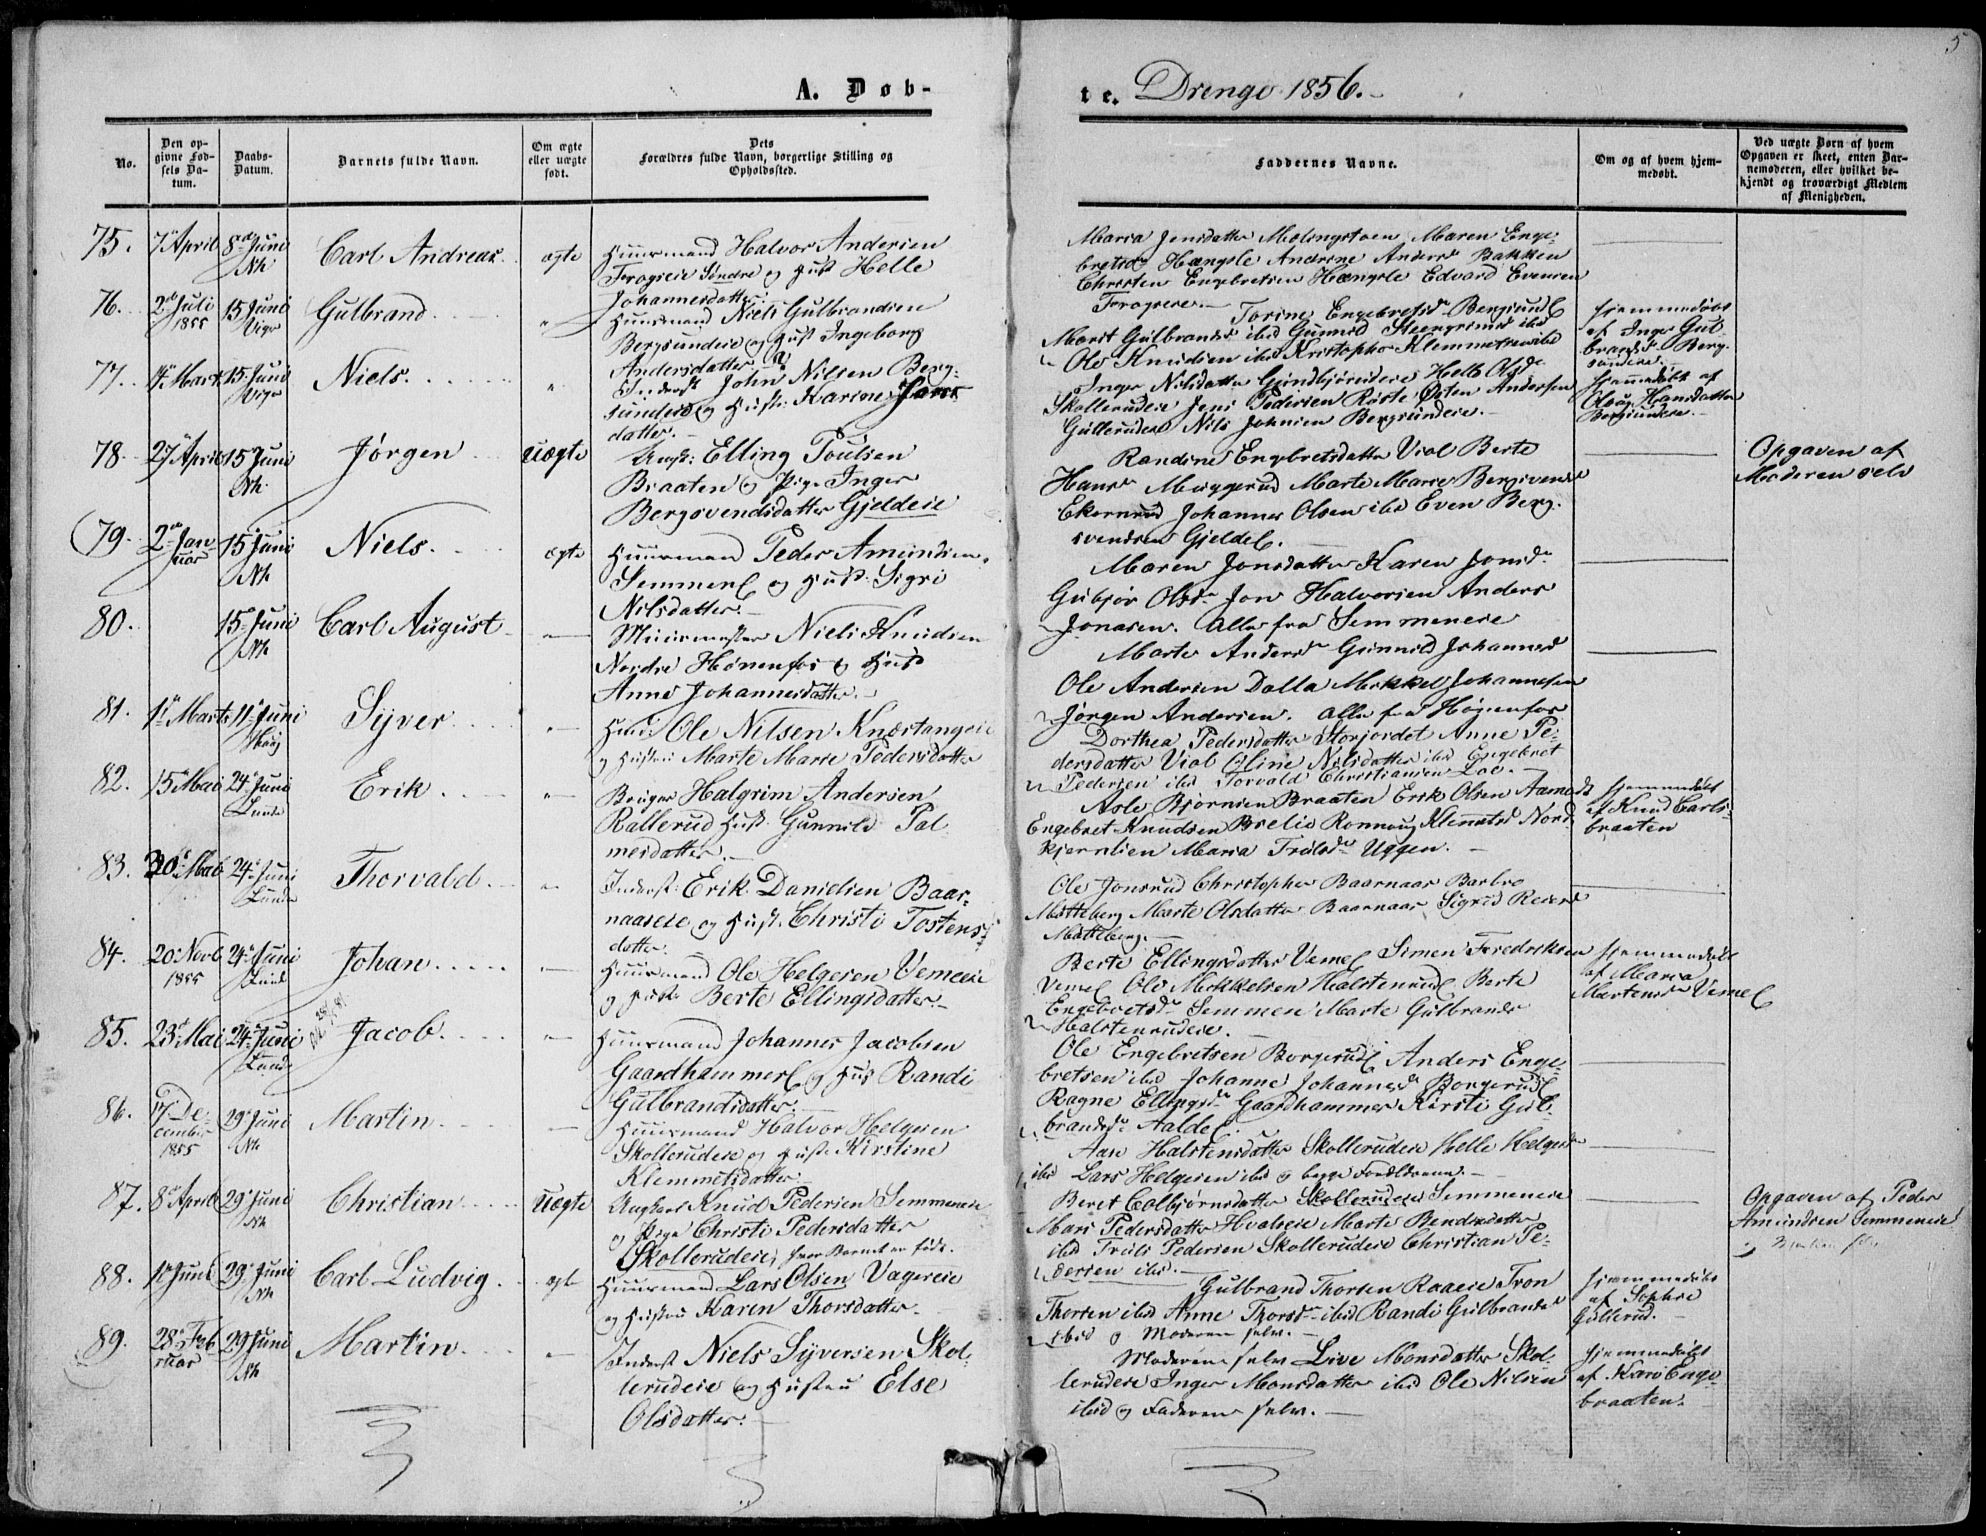 5
A. Døb-
te. Drenge 1856.
No.
Den op-
givne Fød-
sels Da-
tum.
Daabs-
Datum.
Barnets fulde Navn.
Om ægte
eller uægte
født.
Dets
Forældres fulde Navn, borgerlige Stilling og
Opholdssted.
Faddernes Navne.
Om og af hvem hjem-
medøbt.
Ved uægte Børn af hvem
Opgaven er skeet, enten Bar-
nemoderen, eller hvilket be-
kjendt og troværdigt Medlem
af Menigheden.
75. 7 April 8 Juni Carl Andreas ægte Huusmand Halvor Andersen
Nh.
Frogneie Søndre og Hust Helle
Johannesdatter.
Maria Jensdatter Maren Enge-
bretsd Hængsle Andrine Anders Bakken
Christen Engebretsen Hængsle Edvard Evensen
76. 2 Juli 15 Juni Gulbrand. " Huusmand Niels Gulbrandsen
1855 Viger
Bergsundeie og Hust Ingeborg
Andersdatter
Torine Engebretsd Bergsund
Marit Gulbrandsd ibid Gunnild Steengrimsd ibid
Ole Knudsen ibid Kristopher Klemmetsen ibid
Hjemmedøbt
af Inger Gul
brandsd Berg-
sundeie.
77. 15 Juni Niels. " Inderst John Nilsen Berg-
Viger
sundeie og Hust: Karine
datter.
Inger Nilsdatter Helle Olsd
Skollerudeie Jens Pedersen Røste Østen Andersen
Gullerud Nils Johnsen Bergsundeie.
Hjemmedøbt af
Hansdatter
Bergsundeie.
78. 27 April 15 Juni Jørgen uægte Ungk: Elling Poulsen
Nh.
Braaten og Pige Inger
Bergsvendsdatter Gjeldeie
Randine Engebretsdatter Viol Berte
Hansd Muggerud Marte Marie Bergsvends
Ekernrud Johannes Olsen ibid Even Berg-
svendsen Gjeldel.
Opgaven af
Moderen selv
79. 2 Jan- 15 Juni Niels. ægte Huusmand Peder Amundsen
uar Nh
Semmen og Hust. Sigri
Nilsdatter.
Maren Jonsdatter Karen Jonsd.
Gubjør Olsd Jon Halvorsen Anders
Jonasen. Alle fra Semmeneie
80. 15 Juni Carl August Muurmester Niels Knudsen
Nh
Nordre Hønenfos og Hust
Anne Johannesdatter.
Marte Andersd Gunnild Johannesd
Ole Andersen Dalla Mikkel Johannesen
Jørgen Andersen. Alle fra Hønenfos
81. 1 Marts Juni Syver Huusm: Ole Nilsen Knæstangeie
Haug
og Hustru Marte Marie Pedersdatter
Dorthea Pedersdatter Storjordet Anne Pe-
dersdatter Viol Oline Nilsdatter ibid Engebret
Pedersen ibid Torvald Christiansen Loe.
82. 15 Mai 24 Juni Erik. Bruger Halgrim Andersen
Lunde
Rallerud Hust. Gunnild Pal
mesdatter.
Asle Bjørnsen Braaten Erik Olsen
Engebret Knudsen Brelie Ronnaug Klemetsd Nord-
kjernlien Maria Trulsd Uggen.
Hjemmedøbt
af Knud Carls-
braaten
83. 30 Mai 24 Juni Thorvald. Inderst: Erik Danielsen Baar-
Lunde
naaseie og Hust. Christi Tostens
datter
Ole Jonsrud Christopher Baarnaas Barbro
Mitteberg Marte Olsdatter Baarnaas Sigrid Reiersd
Mitteberg.
84. 20 Novb 24 Juni Johan. Huusmand Ole Helgesen Vemeeie
1855 Lund
og Hust: Berte Ellingsdatter.
Berte Ellingsdatter Veme Simen Fredriksen
Veme Ole Mikkelsen Halstenrud Berte
Engebretsd Semmen Marte Gulbrandsd
Halstenrudeie.
Hjemmedøbt
af Maria
Martensd Veme
85. 23 Mai 24 Juni Jacob. Huusmand Johannes Jacobsen
Lunde
Gaardhammer og Hust Randi
Gulbrandsdatter.
Ole Engebretsen Borgerud Anders Enge-
bretsen ibid Johanne Johannesd Borgerud
Ragne Ellingsd Gaardhammer Kirsti Gul-
brandsd Aalde.
86. 17 De- 29 Juni Martin. Huusmand Halvor Helgesen
cember Nh
1855
Skollerudeie og Hust: Kirstine
Klemmetsdatter
Halstensdatter Skollerudeie Helle Helgesd
ibid Lars Helgesen ibid og begge Forældrene.
87. 8 April 29 Juni Christian uægte Ungkarl Knud Pedersen Semmeneie
Nh
og Pige Christi Pedersdatter
Skollerudeie, hvor Barnet er født.
Beret Colbjørnsdatter Semmeneie
Mari Pedersdatter Hvalseie Marte Bendixdatter
ibid Truls Pedersen Skollerudeie Christian Pe-
dersen ibid.
Opgaven af Peder
Amundsen Semmeneie
88. Juni 29 Juni Carl Ludvig ægt Huusmand Lars Olsen Vageseie
Nh
og Hustru Karen Thorsdatter.
Gulbrand Thorsen Raaeie Tron
Thorsen ibid Anne Thorsd ibid Randi Gulbrandsd
ibid og Moderen selv.
Hjemmedøbt
af Sophie
Gullerud.
89. 28 Feb 29 Juni Martin Inderst Niels Syversen Skol-
ruar Nh
lerudeie og Hustru Else
Olsdatter.
Moderen selv Live Monsdatter Skol-
lerudeie Inger Monsdatter ibid Ole Nilsen
ibid og Faderen selv.
Hjemmedøbt
af Kari Enge-
braaten.